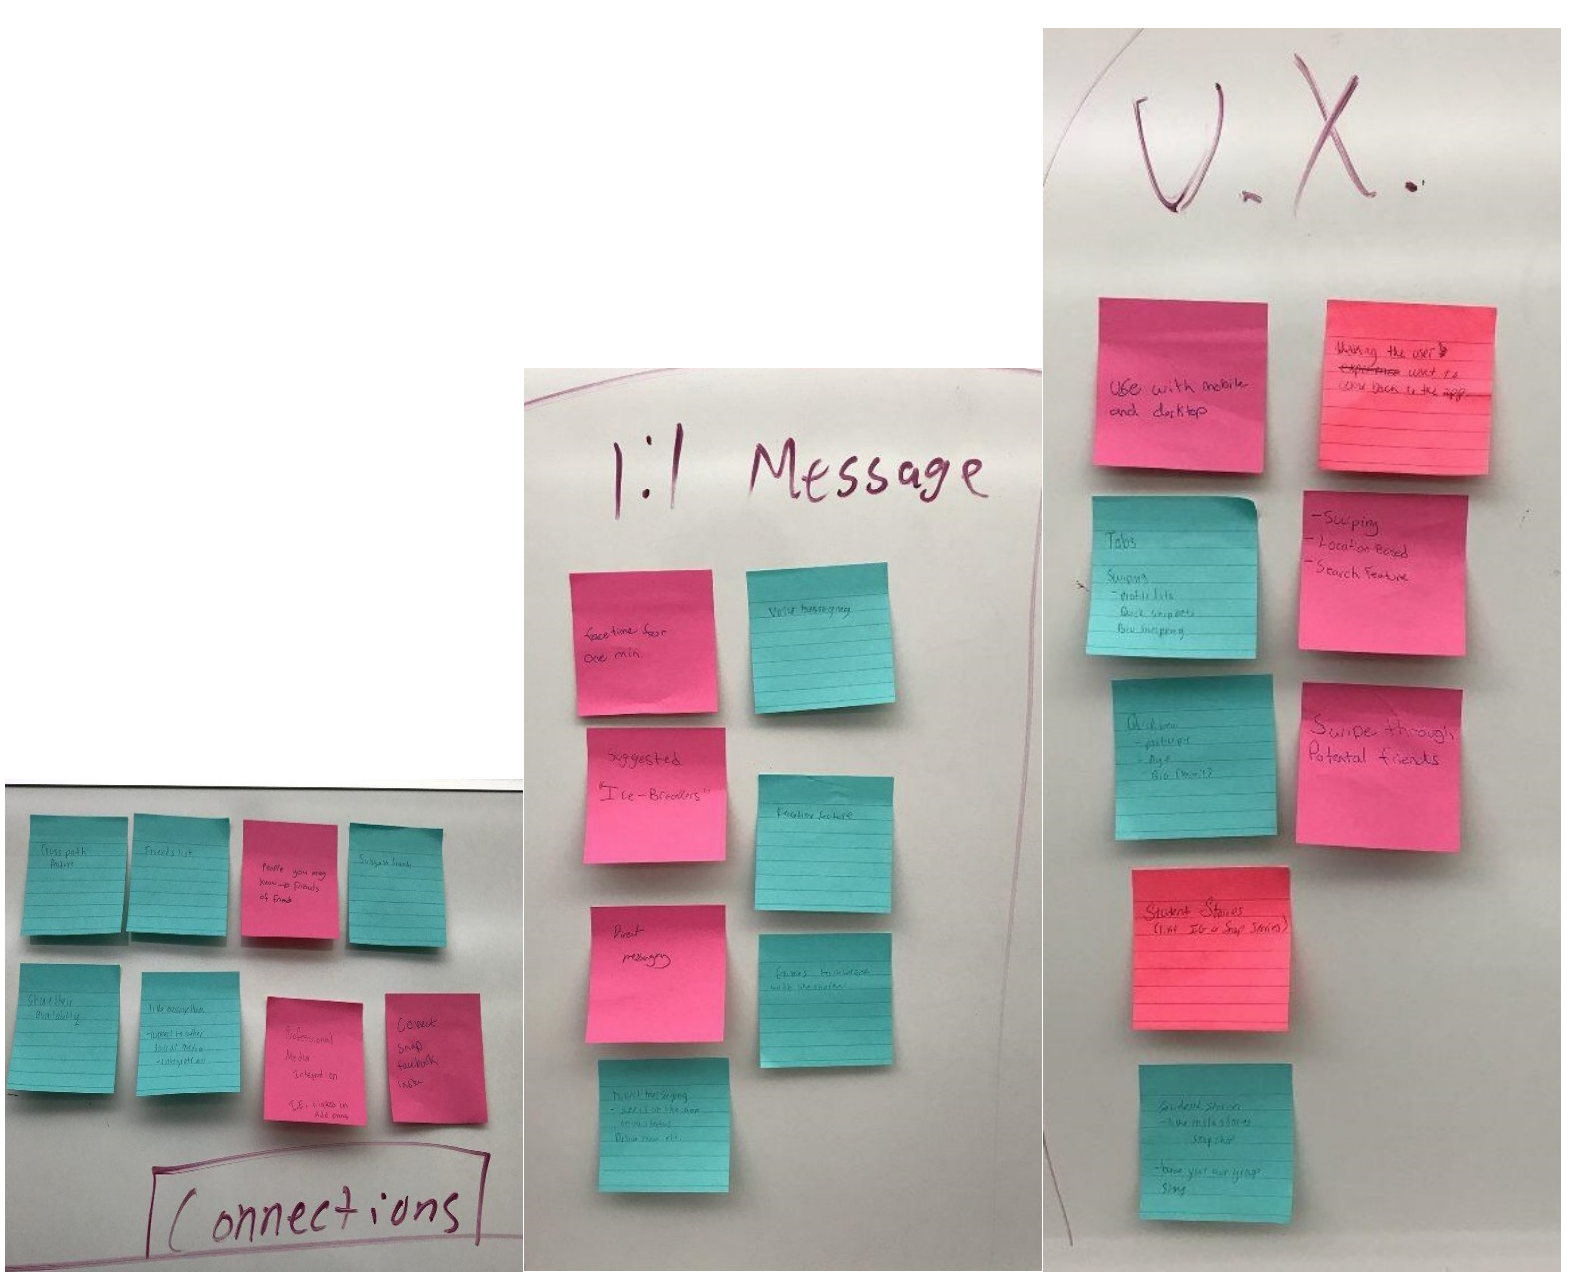 Cross path
feature
Friends list
People you may
know → Friends
of Friends
Suggest friends
Share their
availability
- connect to other
social media
Professional
Media
Integration
I.E. Linked in
Connect
Snap
Facebook
Connections
1:1 Message
facetime for
one min
Voice messaging
Suggested
"Ice-Breakers"
Facetime feature
Direct
messaging
Games to interact
with
Direct messaging
U.X.
Use with mobile
and desktop
Making the user
experience want to
come back to the app
Tabs
Swiping
- Profile
Quick snippets
Bio
- Swiping
- Location Based
- Search Feature
Quick view
- Age
- Bio
Swipe through
Potental friends
Student Stories
(like IG or Snap Stories)
Student stories
- like insta stories
Snapchat
- have your own group